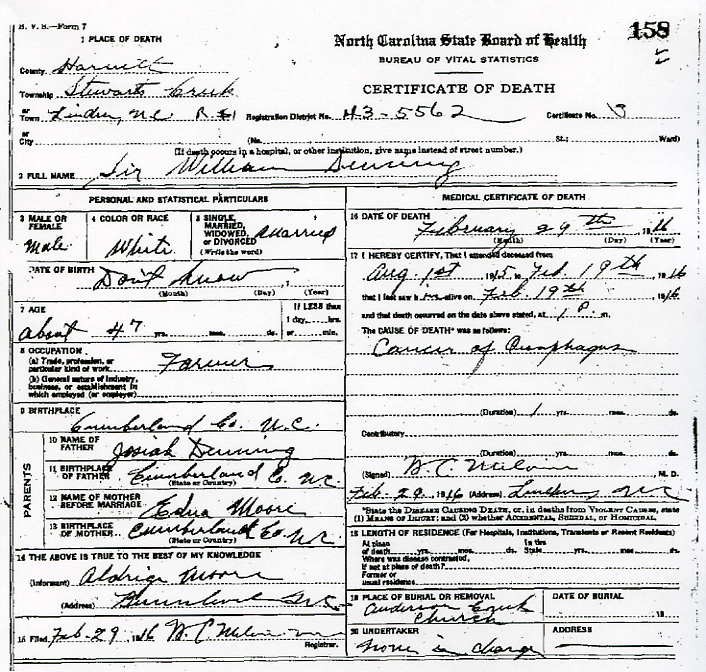 N. V. S.—Form 7
1 PLACE OF DEATH
North Carolina State Board of Health
158
BUREAU OF VITAL STATISTICS
County Harnett
CERTIFICATE OF DEATH
Township Stewarts Creek
or Town Linden, N.C. R #1
Registration District No. 43-5562
Certificate No. 3
or City
(No. St.; Ward)
(If death occurs in a hospital, or other institution, give name instead of street number.)
2 FULL NAME Sir William Denning
PERSONAL AND STATISTICAL PARTICULARS
3 MALE OR FEMALE Male
4 COLOR OR RACE White
5 SINGLE, MARRIED, WIDOWED, or DIVORCED (Write the word) Married
DATE OF BIRTH Don't know
(Month) (Day) (Year)
7 AGE about 47 yrs. mos. ds.
If LESS than 1 day, hrs. or min.
8 OCCUPATION
(a) Trade, profession, or particular kind of work Farmer
(b) General nature of industry, business, or establishment in which employed (or employer)
9 BIRTHPLACE Cumberland Co. N.C.
PARENTS
10 NAME OF FATHER Josiah Denning
11 BIRTHPLACE OF FATHER Cumberland Co. NC
(State or Country)
12 NAME OF MOTHER BEFORE MARRIAGE Edna Moore
13 BIRTHPLACE OF MOTHER Cumberland Co NC
(State or Country)
14 THE ABOVE IS TRUE TO THE BEST OF MY KNOWLEDGE
(Informant) Aldrige Moore
(Address) NC
15 Filed Feb-29 1916 Registrar.
MEDICAL CERTIFICATE OF DEATH
16 DATE OF DEATH February 29th 1916
(Month) (Day) (Year)
17 I HEREBY CERTIFY, That I attended deceased from
Aug. 1st 1915 to Feb. 19th 1916
that I last saw him alive on Feb. 19th 1916
and that death occurred on the date above stated, at 1 P. m.
The CAUSE OF DEATH* was as follows:
Cancer of Oesophagus
(Duration) 1 yrs. mos. ds.
Contributory
(Duration) yrs. mos. ds.
(Signed) M. D.
Feb-29 1916 (Address) Linden NC
*State the DISEASE CAUSING DEATH, or, in deaths from VIOLENT CAUSES, state
(1) MEANS OF INJURY; and (2) whether ACCIDENTAL, SUICIDAL, or HOMICIDAL.
18 LENGTH OF RESIDENCE (For Hospitals, Institutions, Transients or Recent Residents)
At place of death yrs. mos. ds. In the State yrs. mos. ds.
Where was disease contracted,
If not at place of death?
Former or usual residence
19 PLACE OF BURIAL OR REMOVAL
Anderson Creek Church
DATE OF BURIAL
19
20 UNDERTAKER
none in charge
ADDRESS